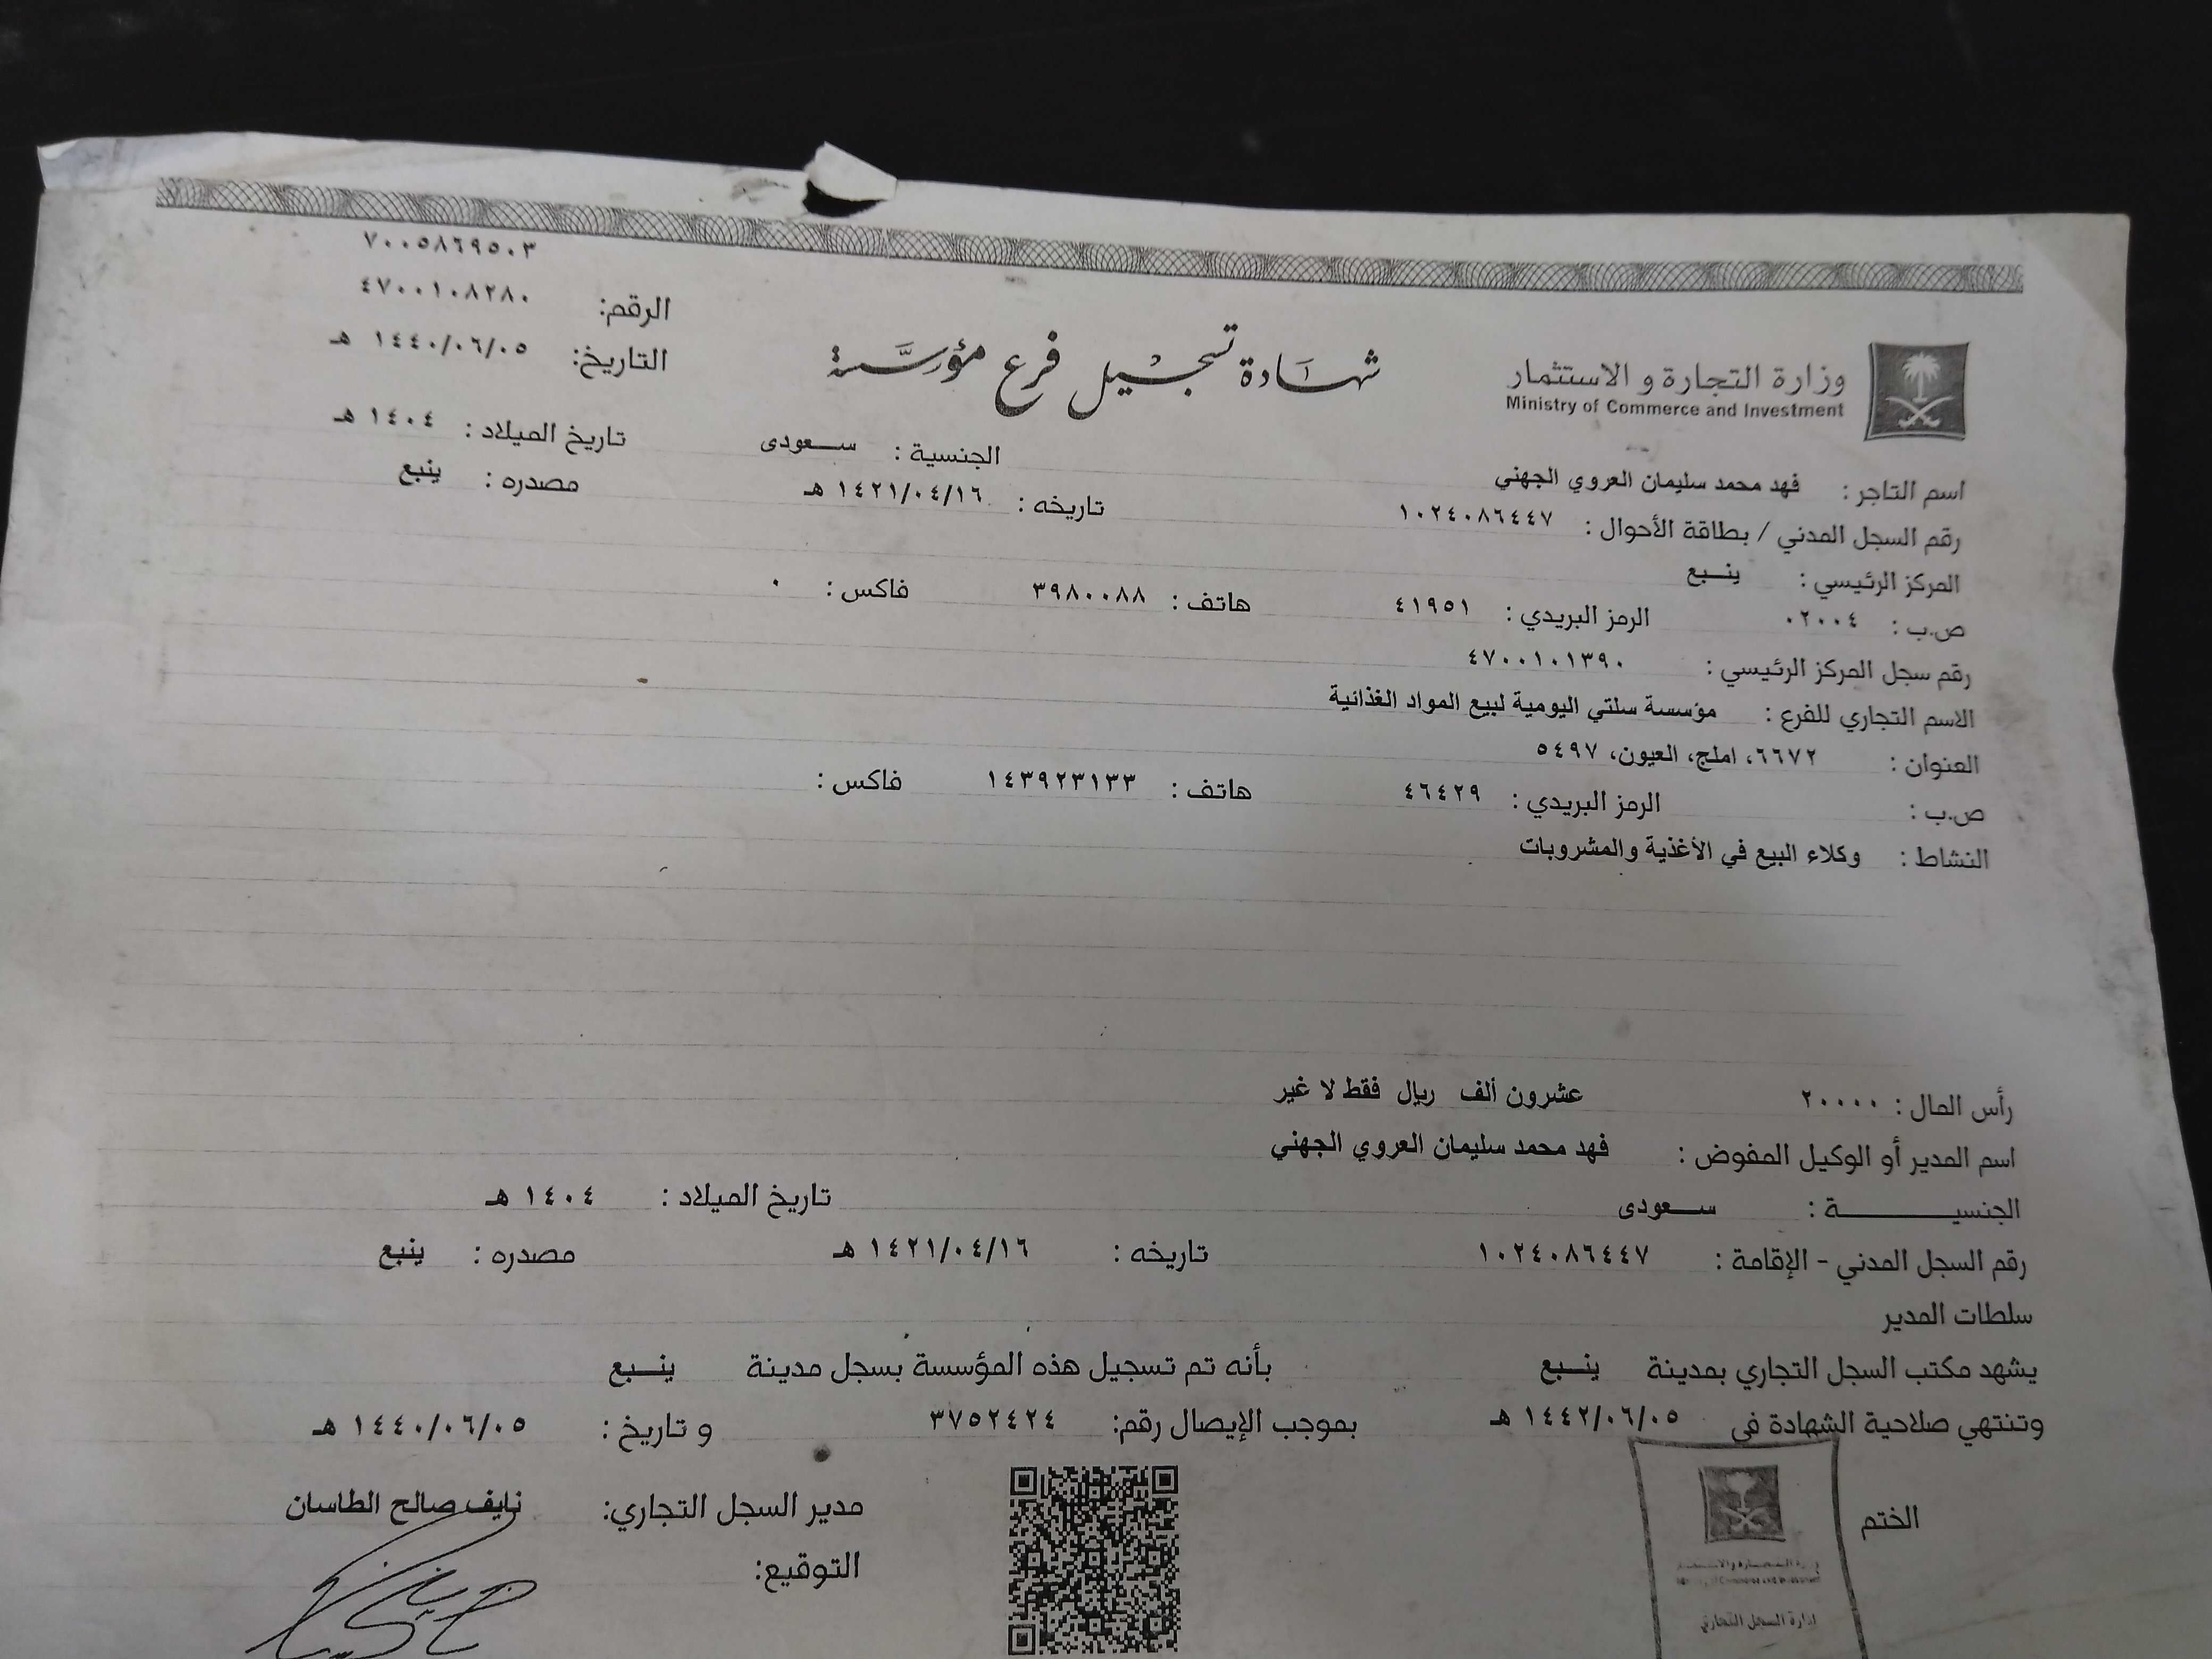 ٧٠٠٥٨٦٩٥٠٣
الرقم: ٤٧٠٠١٠٨٢٨٠
التاريخ: ١٤٤٠/٠٦/٠٥ هـ
شهادة تسجيل فرع مؤسسة
وزارة التجارة و الاستثمار
Ministry of Commerce and Investment
اسم التاجر : فهد محمد سليمان العروي الجهني الجنسية : سعودى تاريخ الميلاد : ١٤٠٤ هـ
رقم السجل المدني / بطاقة الأحوال : ١٠٢٤٠٨٦٤٤٧ تاريخه : ١٤٢١/٠٤/١٦ هـ مصدره : ينبع
المركز الرئيسي : ينبع
ص.ب : ٠٢٠٠٤ الرمز البريدي : ٤١٩٥١ هاتف : ٣٩٨٠٠٨٨ فاكس : ٠
رقم سجل المركز الرئيسي : ٤٧٠٠١٠١٣٩٠
الاسم التجاري للفرع : مؤسسة سلتي اليومية لبيع المواد الغذائية
العنوان : ٦٦٧٢، املج، العيون، ٥٤٩٧
ص.ب : الرمز البريدي : ٤٦٤٢٩ هاتف : ١٤٣٩٢٣١٣٣ فاكس :
النشاط : وكلاء البيع في الأغذية والمشروبات
رأس المال : ٢٠٠٠٠ عشرون ألف ريال فقط لا غير
اسم المدير أو الوكيل المفوض : فهد محمد سليمان العروي الجهني
الجنسيـــــــة : سعودى تاريخ الميلاد : ١٤٠٤ هـ
رقم السجل المدني - الإقامة : ١٠٢٤٠٨٦٤٤٧ تاريخه : ١٤٢١/٠٤/١٦ هـ مصدره : ينبع
سلطات المدير
يشهد مكتب السجل التجاري بمدينة ينبع بأنه تم تسجيل هذه المؤسسة بسجل مدينة ينبع
وتنتهي صلاحية الشهادة في ١٤٤٢/٠٦/٠٥ هـ بموجب الإيصال رقم: ٣٧٥٢٤٢٤ و تاريخ : ١٤٤٠/٠٦/٠٥ هـ
الختم
مدير السجل التجاري: نايف صالح الطاسان
التوقيع:
وزارة التجارة والاستثمار
Ministry of Commerce and Investment
إدارة السجل التجاري